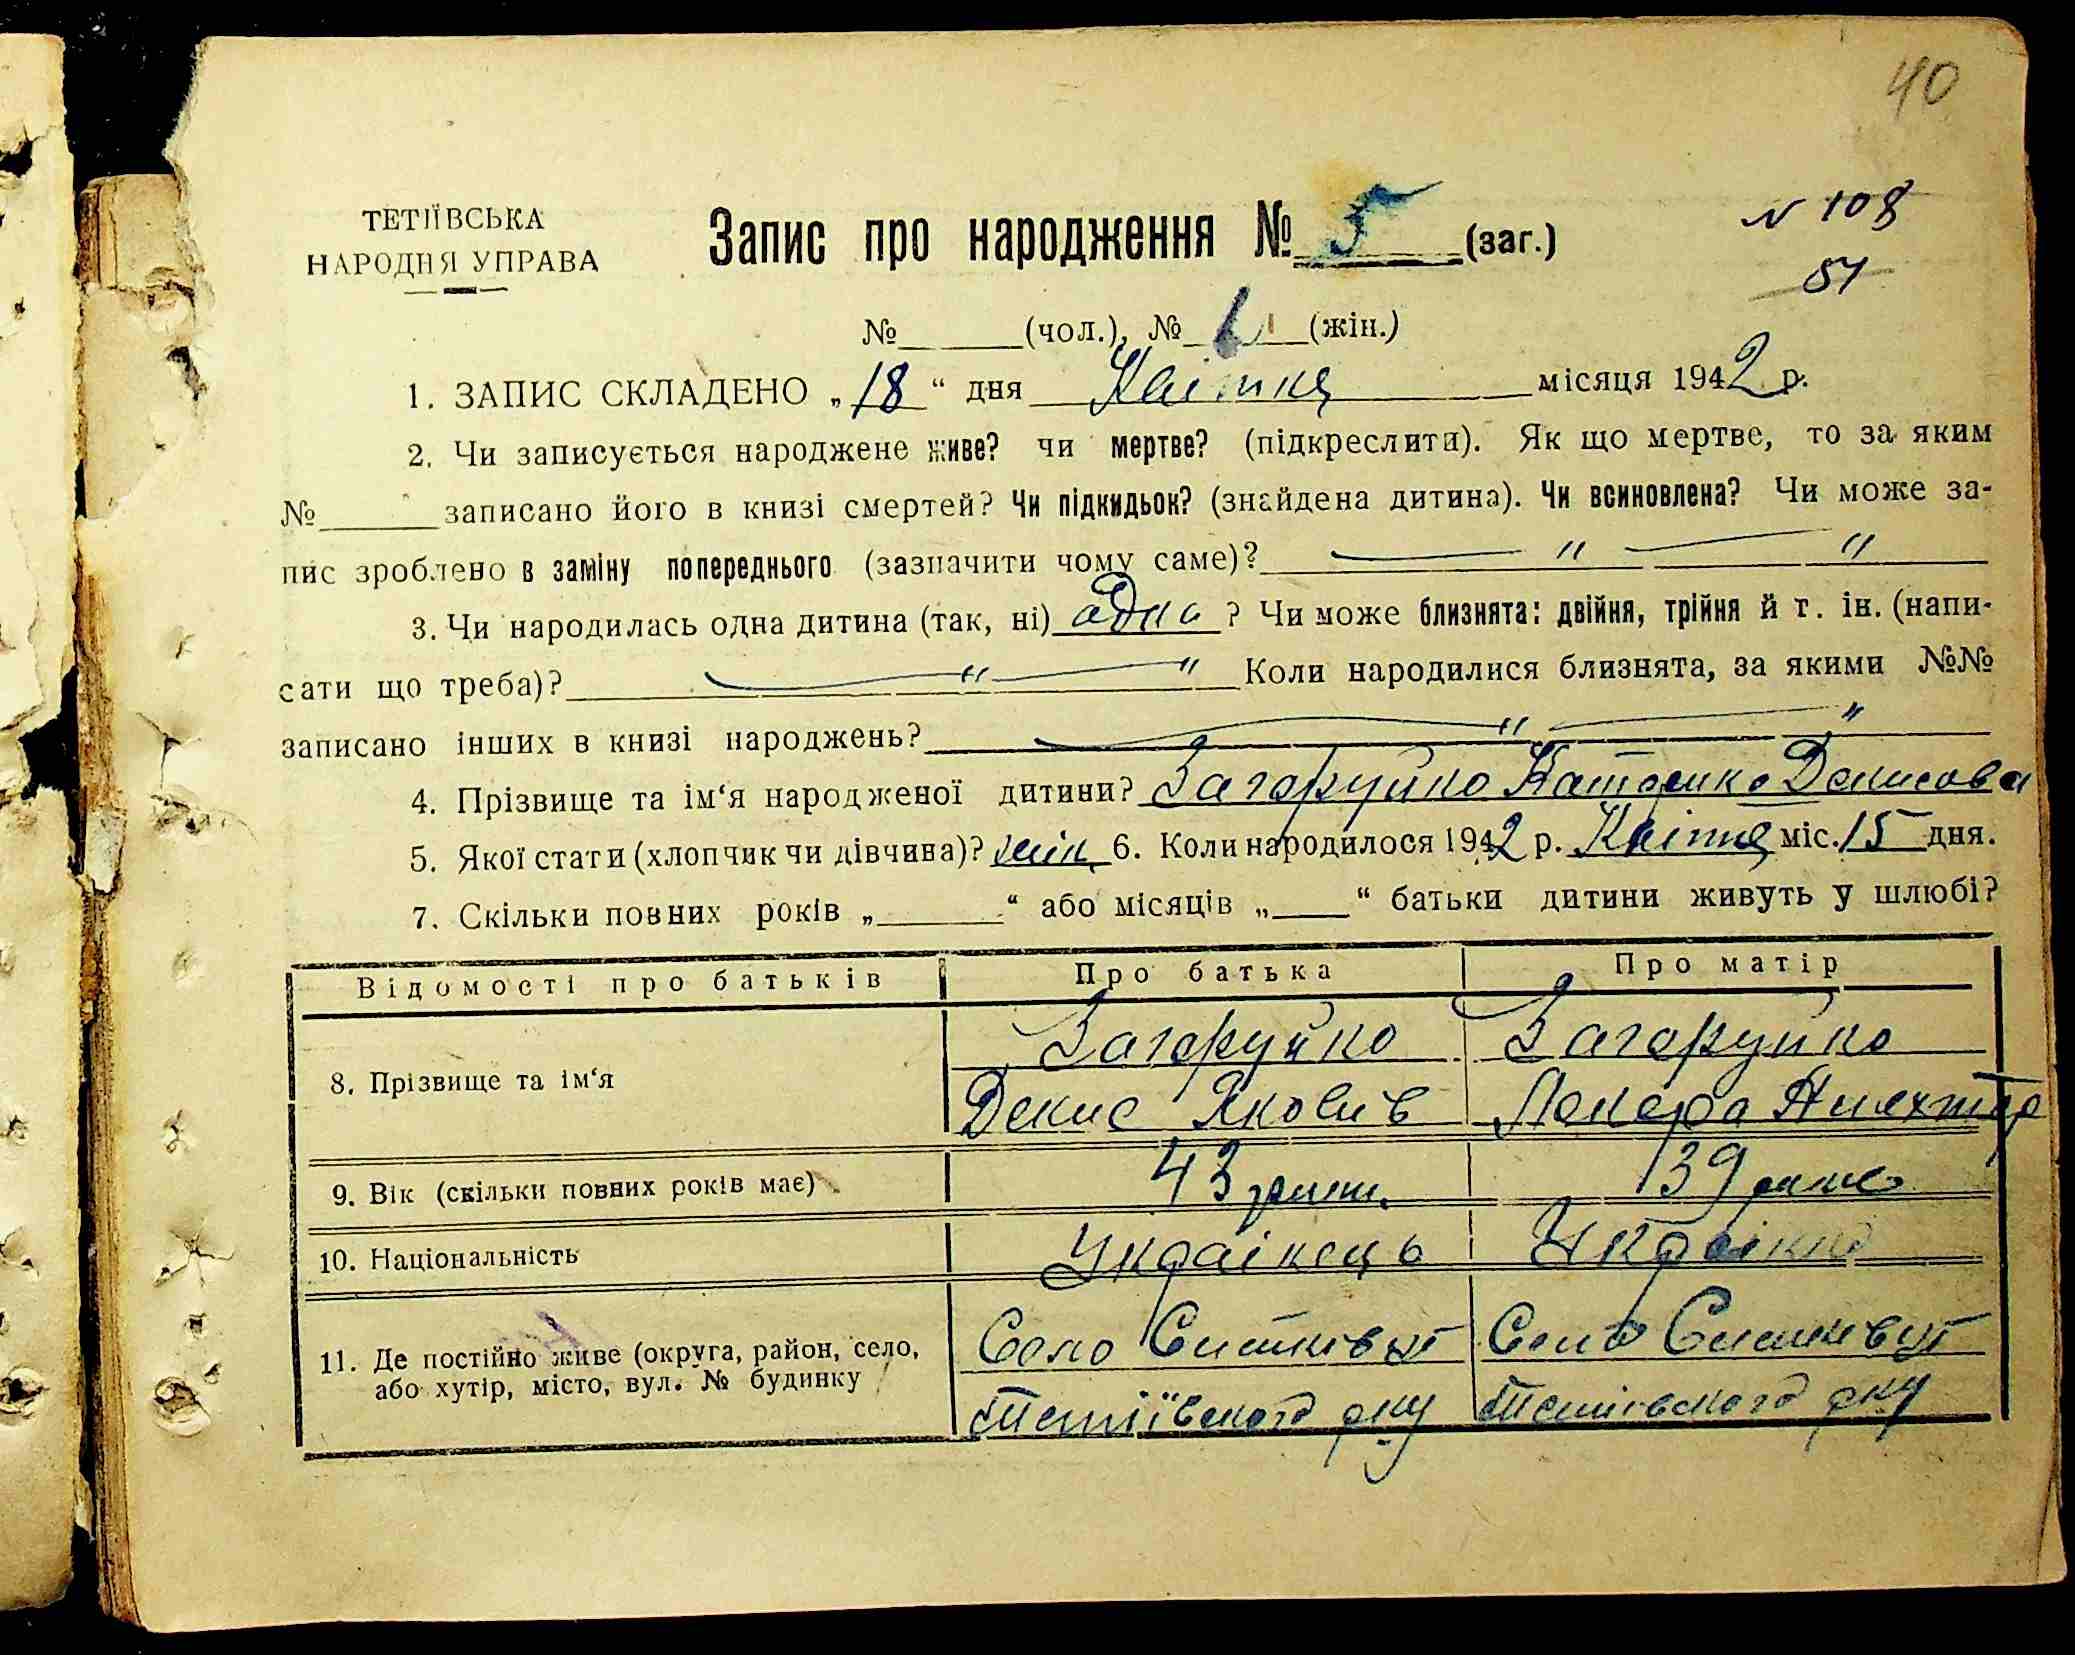 40
ТЕТІЇВСЬКА
НАРОДНЯ УПРАВА
Запис про народження № 5 (заг.)
N 108
51
№ (чол.), № (жін.)
1. ЗАПИС СКЛАДЕНО „18“ дня Квітня місяця 1942 р.
2. Чи записується народжене живе? чи мертве? (підкреслити). Як що мертве, то за яким
№ записано його в книзі смертей? Чи підкидьок? (знайдена дитина). Чи всиновлена? Чи може за-
пис зроблено в заміну попереднього (зазначити чому саме)? — " — "
3. Чи народилась одна дитина (так, ні) одна ? Чи може близнята: двійня, трійня й т. ін. (напи-
сати що треба)? — " — " Коли народилися близнята, за якими №№
записано інших в книзі народжень? — " — "
4. Прізвище та ім‘я народженої дитини? Загоруйко Денисова
5. Якої стати (хлопчик чи дівчина)? жін. 6. Коли народилося 1942 р. Квітня міс. 15 дня.
7. Скільки повних років „ “ або місяців „ “ батьки дитини живуть у шлюбі?
Відомості про батьків Про батька Про матір
Загоруйко Загоруйко
8. Прізвище та ім‘я
Денис Яковів
9. Вік (скільки повних років має) 43 39
10. Національність Українець Українка
11. Де постійно живе (округа, район, село, Село Село
або хутір, місто, вул. № будинку
Тетіївського р-ну Тетіївського р-ну